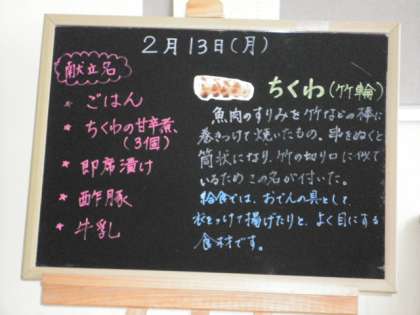 2月13日(月)
献立名
* ごはん
* ちくわの甘辛煮
(3個)
* 即席漬け
* 酢豚
* 牛乳
ちくわ(竹輪)
魚肉のすりみを竹などの棒に
巻きつけて焼いたもの。串をぬくと
筒状になり、竹の切り口に似て
いるためこの名が付いた。
給食では、おでんの具として、
衣をつけて揚げたりと、よく目にする
食材です。